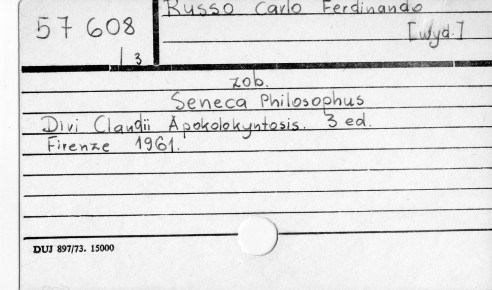 57608
3
Russo Carlo Ferdinando
[wyd.]
zob.
Seneca Philosophus
Divi Claudii Apokolokyntosis. 3 ed.
Firenze 1961.
DUJ 897/73. 15000